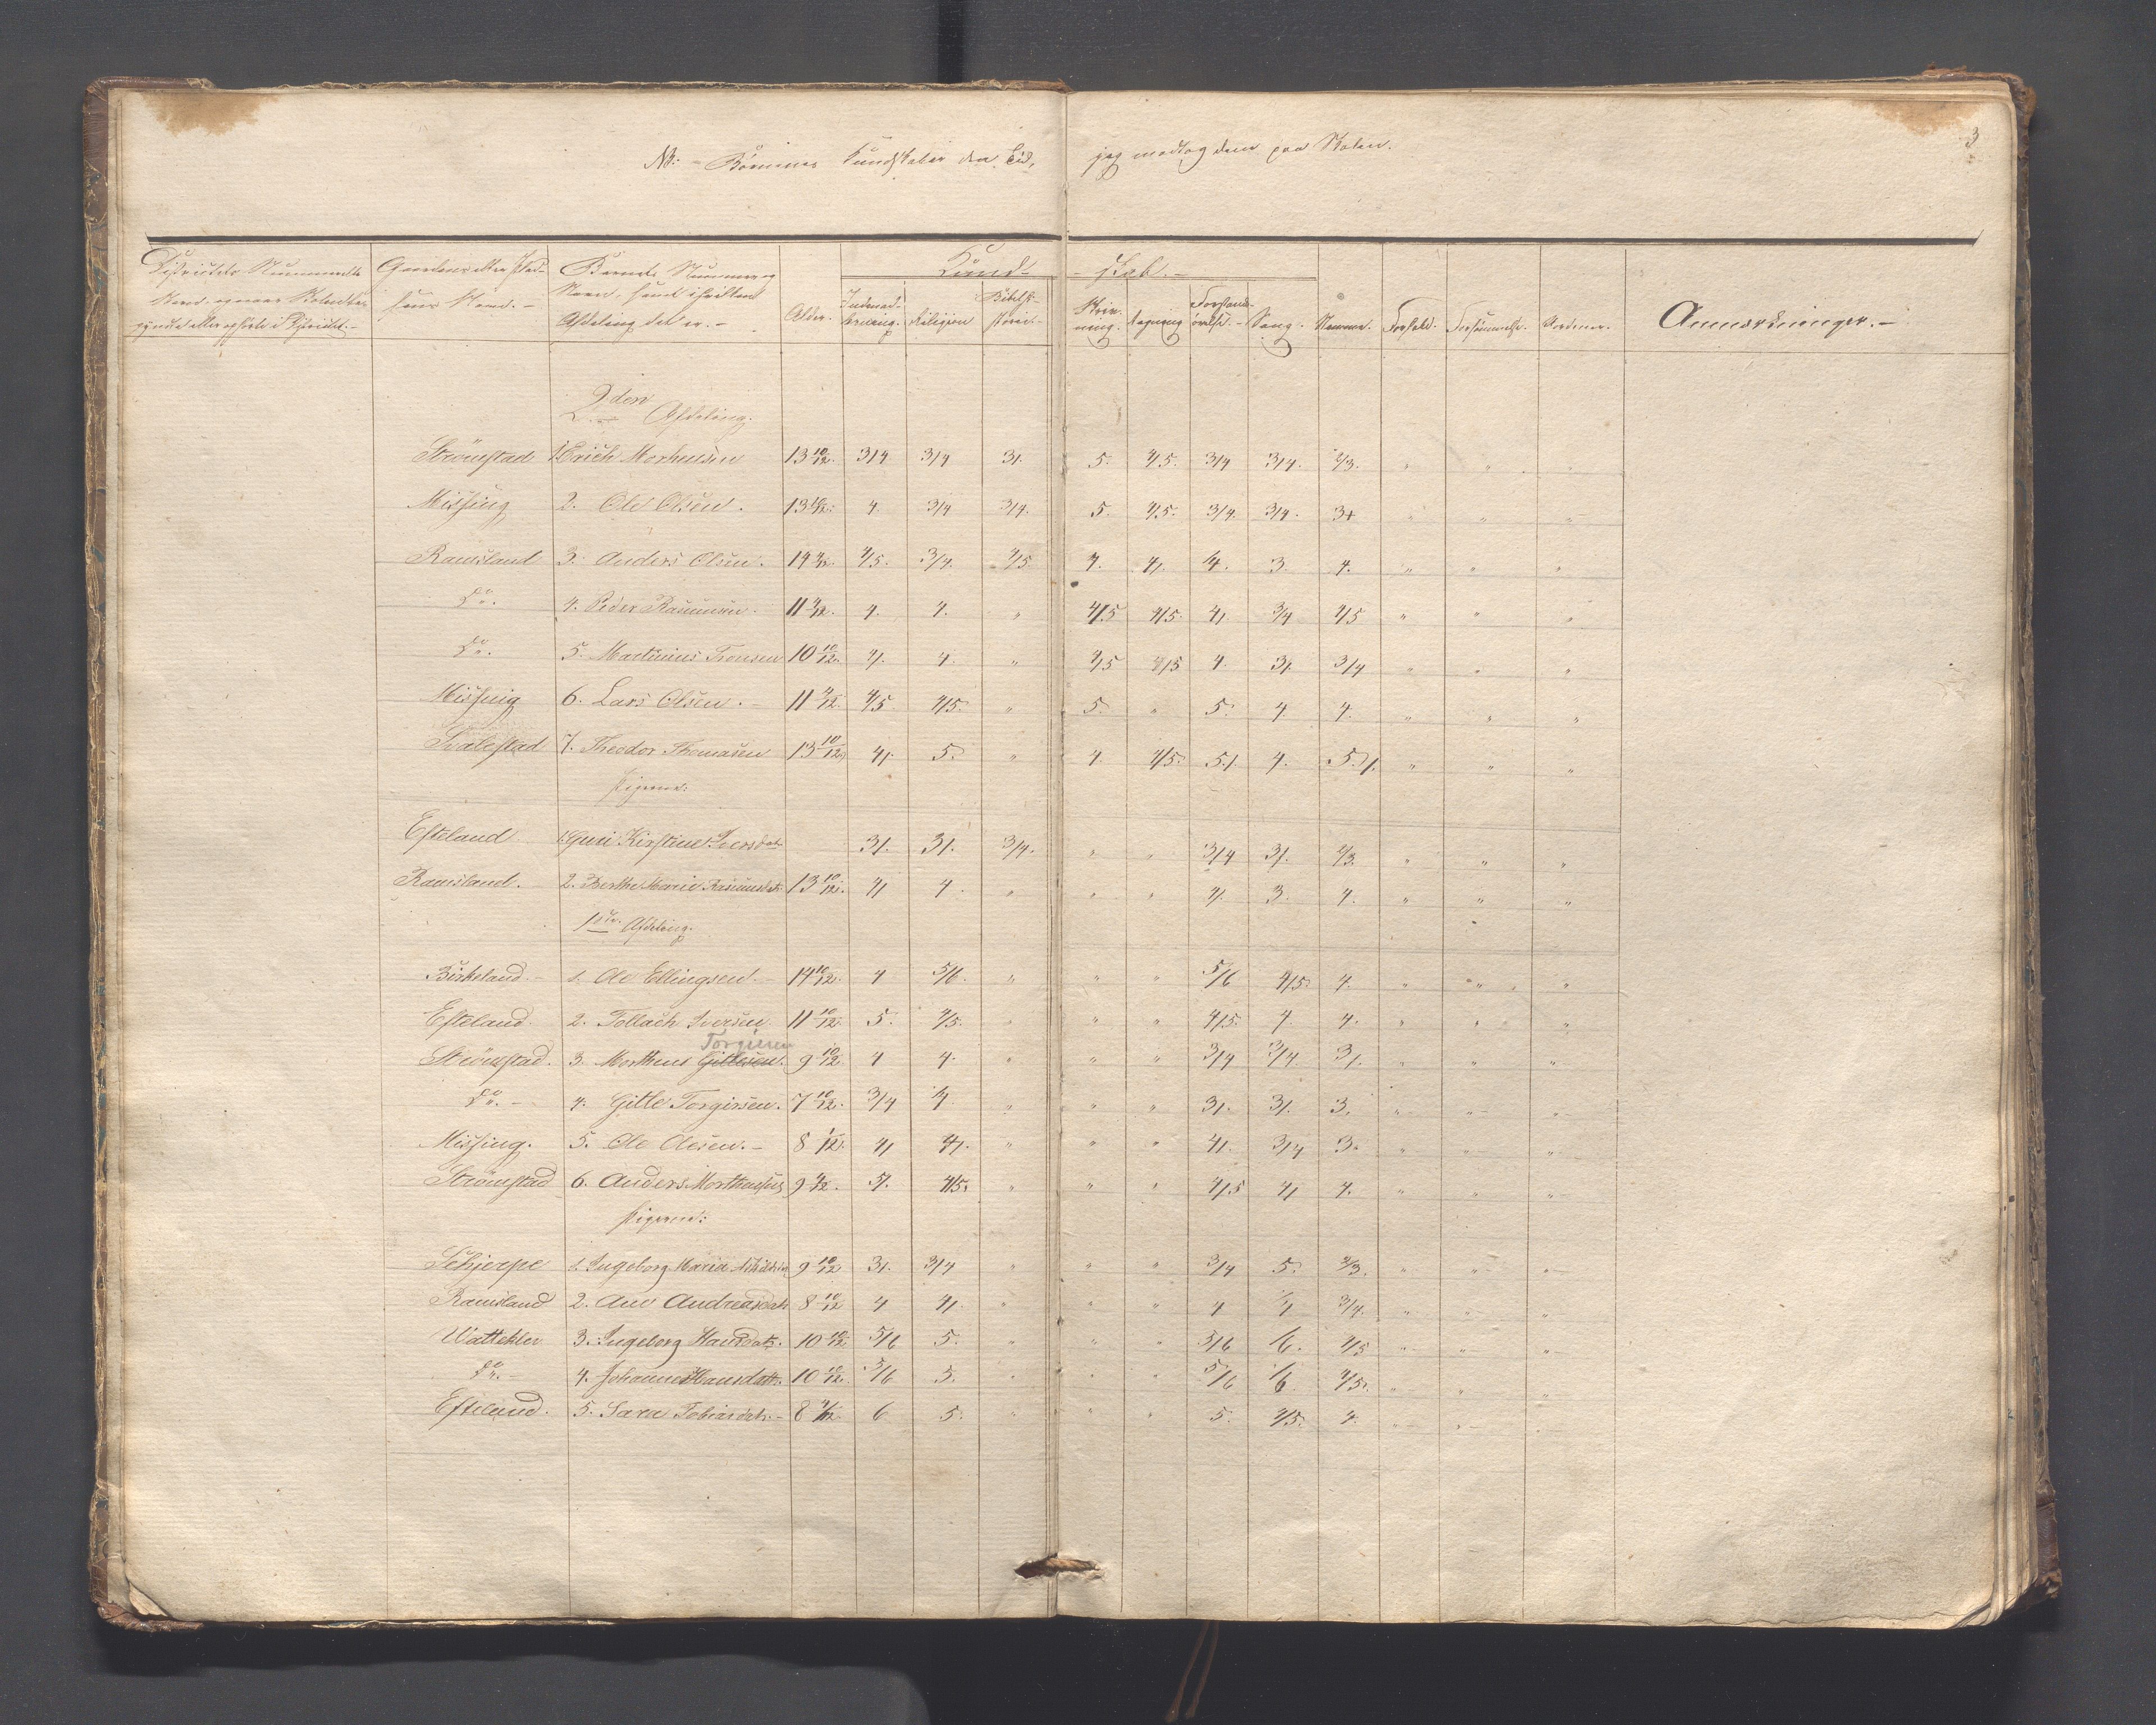 3
NB: - Börnenes Kundskaber den Tid, jeg modtog dem paa Skolen.
Districtets Nummer
Gaardens eller Plad-
sens Navn. -
Barnets Nummer og
Navn, samt i hvilken
Afdeling det er. -
Alder.
Kund- -skab. -
Religion
Bibelhi-
storie. -
Skriv-
ning.
Regning
Forstands-
övelse. -
Sang.
Forhold.
Forsömmelse.
Anmærkninger. -
2den Afdeling.
Strömstad 1. Erich Morhensen 13 10/12. 3/4 3/4 3/. 5. 4/5. 3/4 3/4. 2/3. " " "
Missing 2. Ole Olsen. 13 10/12. 4. 3/4 3/4. 5. 4/5. 3/4. 3/4. 3+ " " "
Ramsland 3. Anders Olsen. 14 4/12. 4/5. 3/4. 4/5 4. 4/. 4. 3. 4. " " "
Do. 4. Peder Rasmusen. 11 4/12. 4. 4. " 4/5 4/5. 4/. 3/4 4/5 " " "
Do. 5. Martinius Tronsen 10 10/12. 4/. 4. " 4/5 4/5 4. 3/. 3/4 " " "
Missing 6. Lars Olsen. - 11 4/12. 4/5 4/5. " 5. " 5. 4. 4. " " "
Svalestad 7. Theodor Thomasen 13 10/12. 4/. 5. " 4. 4/5. 5/. 4. 5/. " " "
Pigerne:
Efteland 1. Guri Kirstine Iversdat. 3/. 3/. 3/4. " " 3/4 3/. 2/3. " " "
Ramsland. 2. Berthe Marie Rasmusdat. 13 10/12. 4/ 4. " " " 4/. 3. 4. " " "
1ste Afdeling.
Birkeland. - 1. Ole Ellingsen. - 14 10/12. 4 5/6. " " " 5/6 4/5. 4. " " "
Efteland. 2. Tollach Iversen. 11 10/12. 5. 4/5. " " " 4/5. 4. 4. " " "
Torgersen
Strömstad. 3. Morthens Gittlesen. 9 10/12. 4 4. " " " 3/4 3/4. 3/. " " "
Do. - 4. Gitle Torgirsen. 7 10/12. 3/4 4. " " " 3/. 3/. 3. " " "
Missing. 5. Ole Olesen. - 8 /12. 4/ 4/. " " " 4/. 3/4 3. " " "
Strömstad 6. Anders Morthensen 9 4/12. 5/. 4/5. " " " 4/5 4/ 4. " " "
Pigerne:
Schjerpe 1. Ingeborg Maria 9 10/12 3/. 3/4 " " " 3/4 5. 2/3. " " "
Ramsland 2. Ane Andreasdat. 8 10/12 4 4/. " " " 4 4 3/4. " " "
Wattekler 3. Ingeborg Hansdatr. 10 10/12. 5/6 5. " " " 5/6 /6. 4/5 " " "
Do. - 4. Johanne Hansdatr. 10 10/12. 5/6 5. " " " 5/6 /6. 4/5. " " "
Efteland. 5. Sara Tobiasdatr. - 8 4/12. 6 5. " " " 5. 4/5. 4. " " "